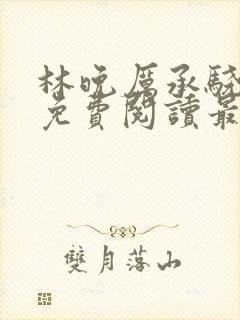 林晚厲承驍
免費閱讀最
雙月落山